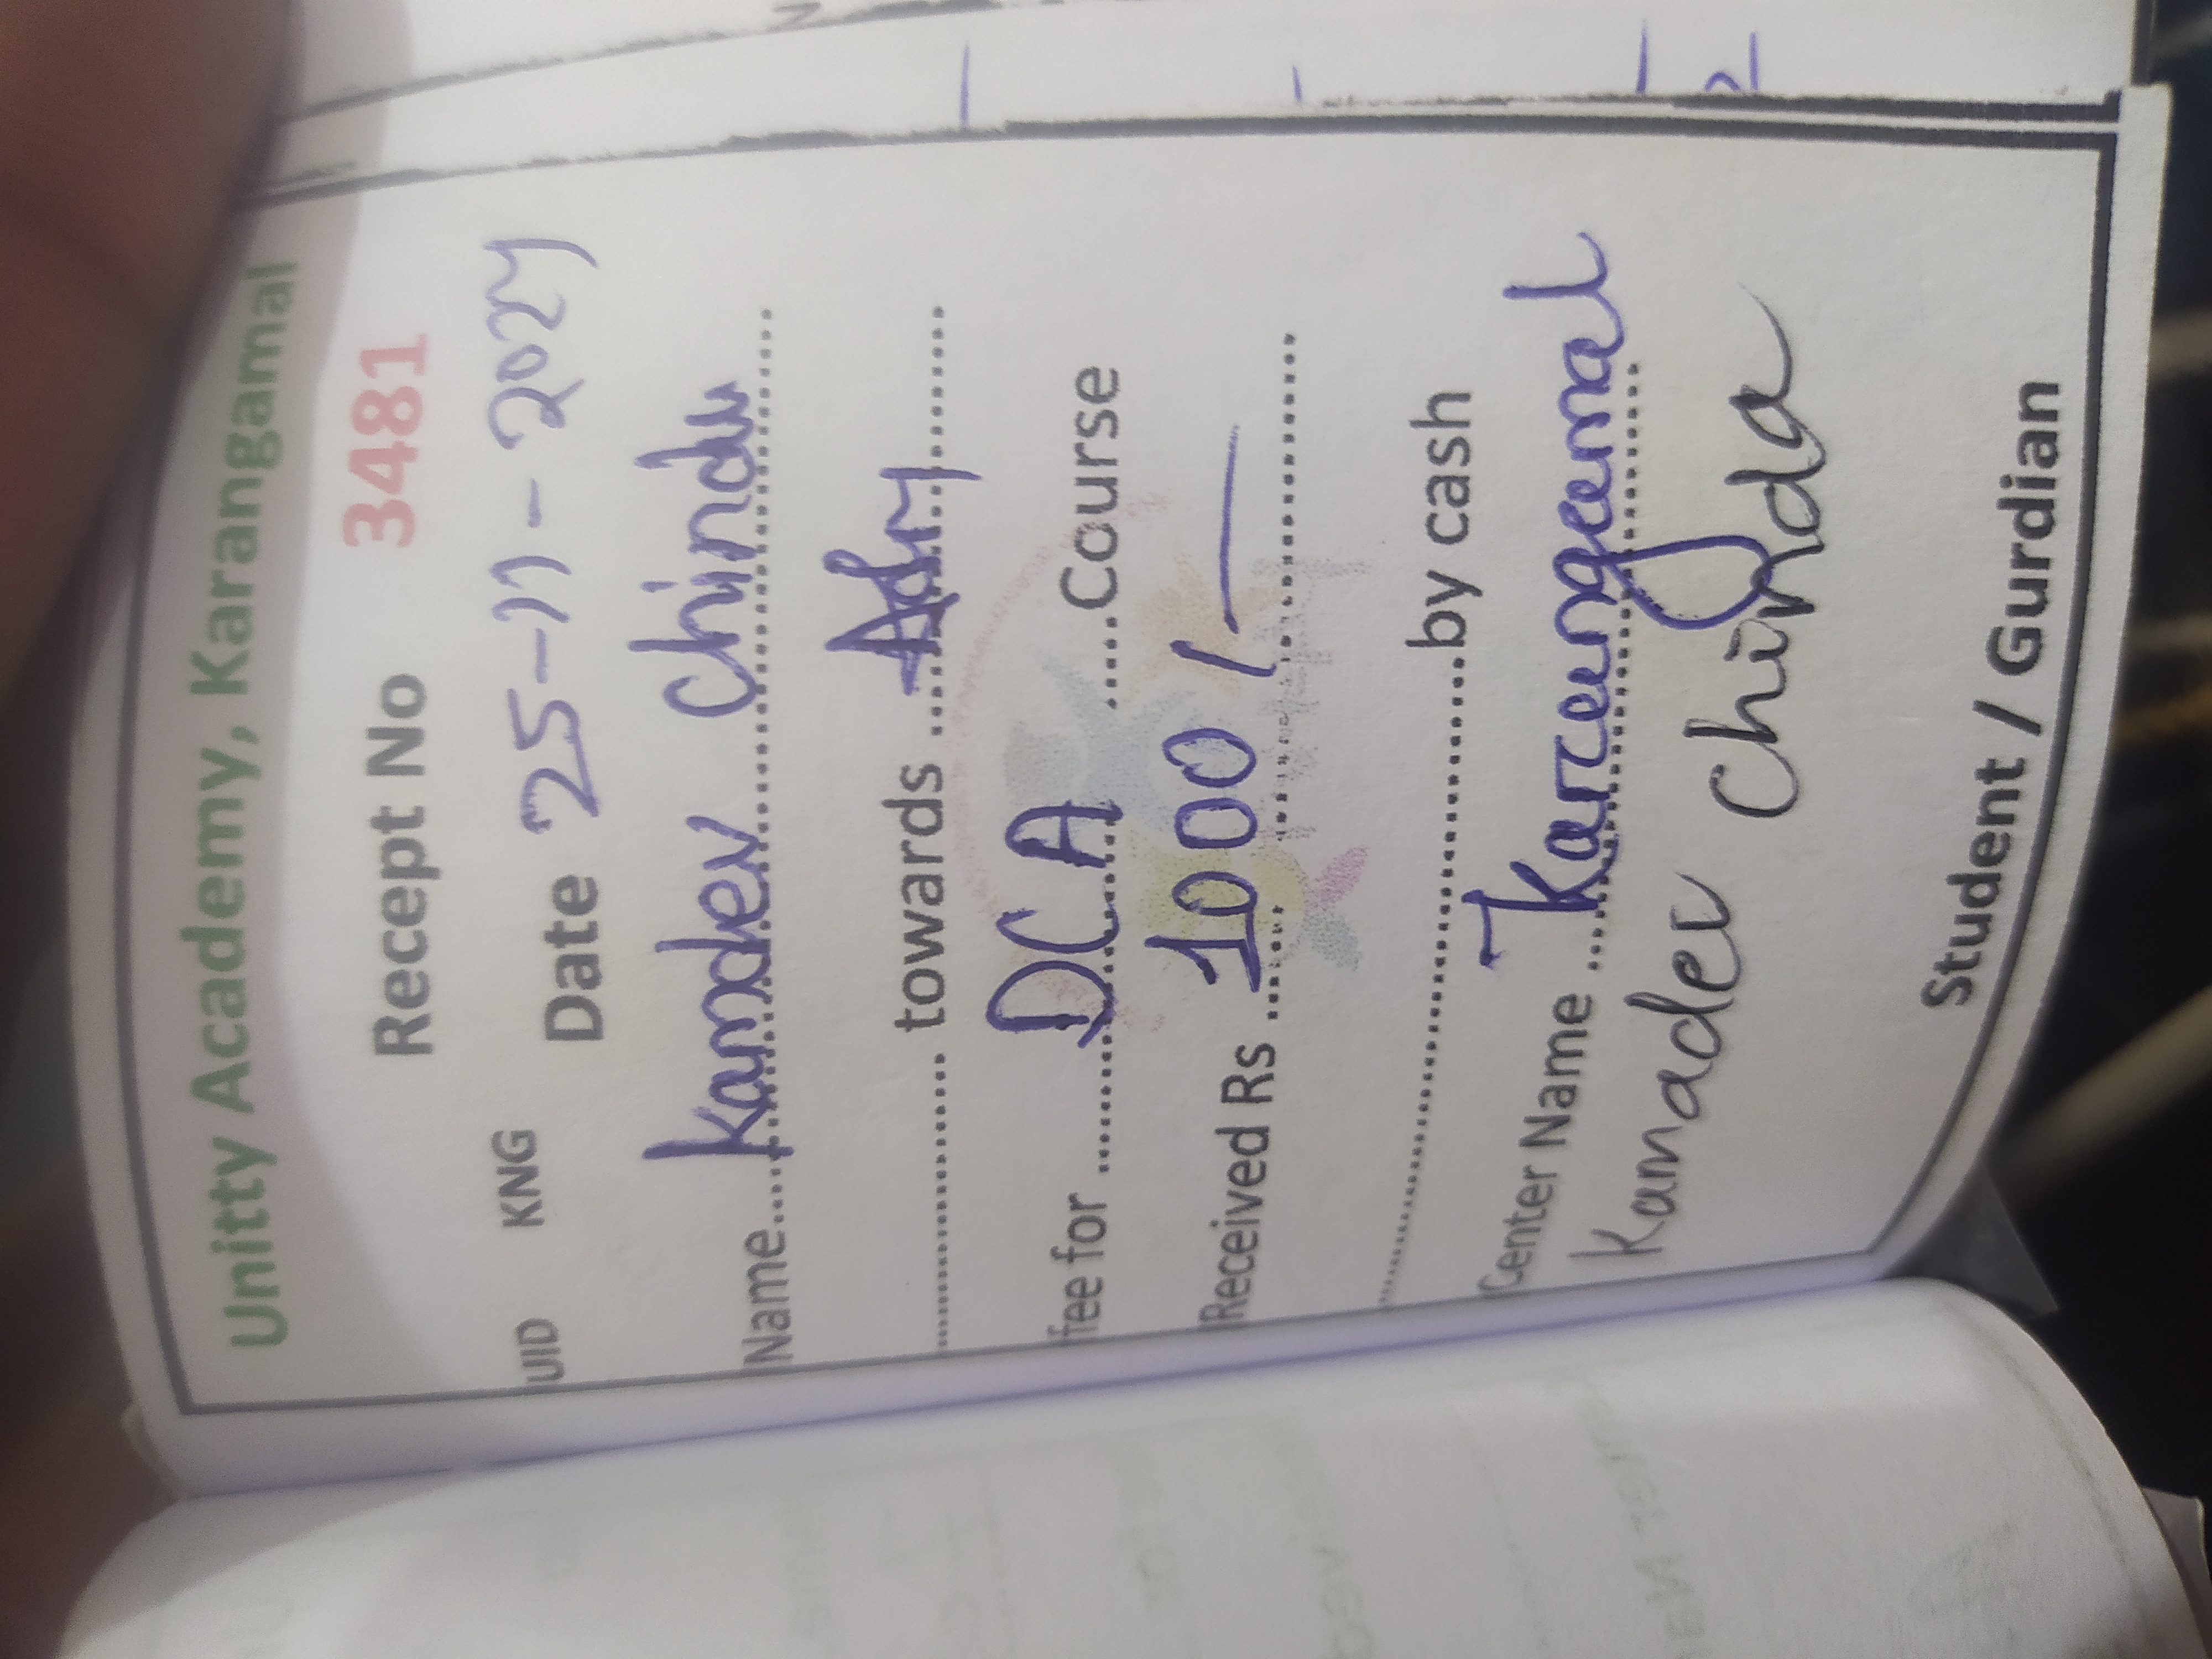 Unitty Academy, Karangamal
Recept No 3481
UID KNG Date 25-11-2024
Name.... Kamdev Chinda
............ towards .... Adm
fee for ...... DCA .....Course
Received Rs ... 1000/-
..............................by cash
Center Name ... Karangamal
Kamadev Chinda
Student / Gurdian